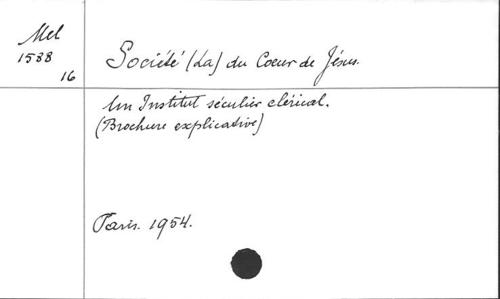 Mel
1588
16
Société (La) du Coeur de Jésus.
Un Institut séculier clérical.
(Brochure explicative)
Paris. 1954.